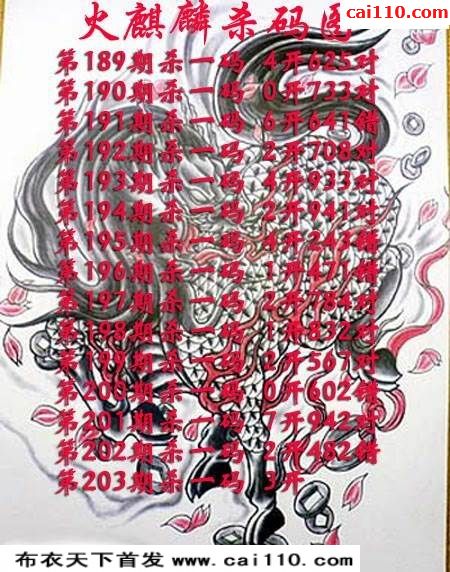 cai110.com
火麒麟杀码图
第189期杀一码 4开625对
第190期杀一码 0开733对
第191期杀一码 6开641错
第192期杀一码 2开708对
第193期杀一码 4开933对
第194期杀一码 2开941对
第195期杀一码 4开243错
第196期杀一码 1开471错
第197期杀一码 2开784对
第198期杀一码 1开832对
第199期杀一码 2开567对
第200期杀一码 0开602错
第201期杀一码 7开942对
第202期杀一码 2开482错
第203期杀一码 3开
布衣天下首发 www.cai110.com